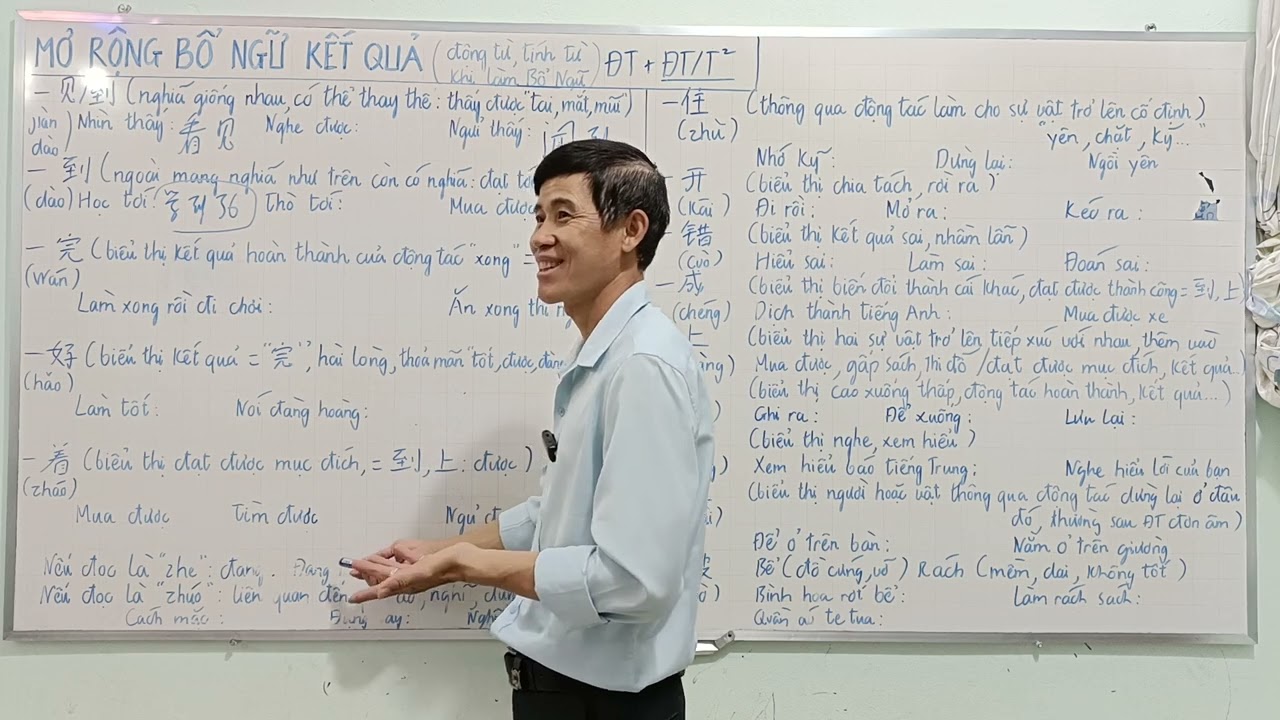 MỞ RỘNG BỔ NGỮ KẾT QUẢ (động từ, tính từ khi làm Bổ Ngữ) ĐT + ĐT/T²
– 见/到 (nghĩa giống nhau, có thể thay thế: thấy được "tai, mắt, mũi")
(jiàn dào) Nhìn thấy: 看见 Nghe được: Ngửi thấy:
– 到 (ngoài mang nghĩa như trên còn có nghĩa: đạt tới
(dào) Học tới: 36 Chờ tới: Mua được
– 完 (biểu thị kết quả hoàn thành của động tác "xong" =
(wán)
Làm xong rồi đi chơi: Ăn xong thì
– 好 (biểu thị kết quả = "完", hài lòng, thoả mãn "tốt, được, đàng
(hǎo)
Làm tốt: Nói đàng hoàng:
– 着 (biểu thị đạt được mục đích, = 到, 上: được)
(zháo)
Mua được Tìm được Ngủ
Nếu đọc là "zhe": đang. Đang
Nếu đọc là "zhuó": liên quan đến áo, nghĩ,
Cách mặc: Đang ấy:
– 住 (thông qua động tác làm cho sự vật trở lên cố định)
(zhù) "yên, chắt, kỹ..."
Nhớ kỹ: Dừng lại: Ngồi yên
– 开 (biểu thị chia tách, rời ra)
(kāi) Đi rồi: Mở ra: Kéo ra:
– 错 (biểu thị kết quả sai, nhầm lẫn)
(cuò) Hiểu sai: Làm sai: Đoán sai:
– 成 (biểu thị biến đổi thành cái khác, đạt được thành công = 到, 上)
(chéng) Dịch thành tiếng Anh: Mua được xe
上 (biểu thị hai sự vật trở lên tiếp xúc với nhau, thêm vào
Mua được, gấp sách, thi đỗ / đạt được mục đích, kết quả...)
(biểu thị cao xuống thấp, động tác hoàn thành, kết quả...)
Ghi ra: Để xuống: Lưu lại:
(biểu thị nghe, xem hiểu)
Xem hiểu báo tiếng Trung: Nghe hiểu lời của bạn
(biểu thị người hoặc vật thông qua động tác dừng lại ở đâu
đó, thường sau ĐT đơn âm)
Để ở trên bàn: Nằm ở trên giường
Bể (đồ cứng, vỡ) Rách (mềm, dai, không tốt)
Bình hoa rơi bể: Làm rách sách:
Quần áo te tua: